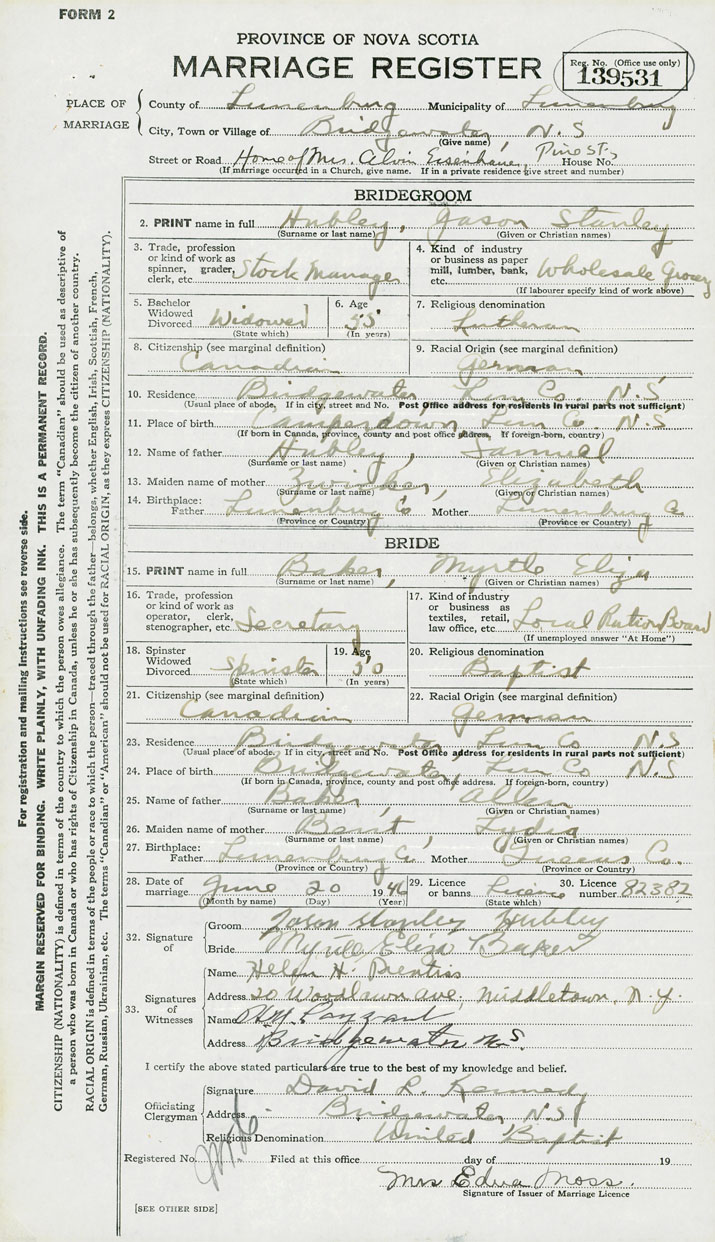 FORM 2
PROVINCE OF NOVA SCOTIA
MARRIAGE REGISTER
Reg. No. (Office use only)
139531
PLACE OF MARRIAGE
County of Lunenburg Municipality of Lunenburg
City, Town or Village of Bridgewater, N.S
(Give name)
Street or Road Home of Mrs. Alvin Eisenhauer, Pine St. House No.
(If marriage occurred in a Church, give name. If in a private residence give street and number)
BRIDEGROOM
2. PRINT name in full Hubley, Jason Stanley
(Surname or last name) (Given or Christian names)
3. Trade, profession or kind of work as spinner, grader, clerk, etc. Stock Manager
4. Kind of industry or business as paper mill, lumber, bank, etc. Wholesale Grocery
(If labourer specify kind of work above)
5. Bachelor Widowed Divorced Widowed
(State which)
6. Age 55
(In years)
7. Religious denomination
Lutheran
8. Citizenship (see marginal definition)
Canadian
9. Racial Origin (see marginal definition)
German
10. Residence Bridgewater Lun Co. N.S
(Usual place of abode. If in city, street and No. Post Office address for residents in rural parts not sufficient)
11. Place of birth Camperdown Lun Co. N.S
(If born in Canada, province, county and post office address. If foreign-born, country)
12. Name of father Hubley, Samuel
(Surname or last name) (Given or Christian names)
13. Maiden name of mother Zwicker, Elizabeth
(Surname or last name) (Given or Christian names)
14. Birthplace: Father Lunenburg Co Mother Lunenburg Co
(Province or Country) (Province or Country)
BRIDE
15. PRINT name in full Baker, Myrtle Eliza
(Surname or last name) (Given or Christian names)
16. Trade, profession or kind of work as operator, clerk, stenographer, etc. Secretary
17. Kind of industry or business as textiles, retail, law office, etc. Local Ration Board
(If unemployed answer "At Home")
18. Spinster Widowed Divorced Spinster
(State which)
19. Age 50
(In years)
20. Religious denomination
Baptist
21. Citizenship (see marginal definition)
Canadian
22. Racial Origin (see marginal definition)
German
23. Residence Bridgewater Lun Co N.S
(Usual place of abode. If in city, street and No. Post Office address for residents in rural parts not sufficient)
24. Place of birth Bridgewater, Lun Co N.S
(If born in Canada, province, county and post office address. If foreign-born, country)
25. Name of father Baker, Allen
(Surname or last name) (Given or Christian names)
26. Maiden name of mother Bent, Lydia
(Surname or last name) (Given or Christian names)
27. Birthplace: Father Lunenburg Co Mother Queens Co.
(Province or Country) (Province or Country)
28. Date of marriage June 20 1946
(Month by name) (Day) (Year)
29. Licence or banns Licence
(State which)
30. Licence number 82382
32. Signature of
Groom Jason Stanley Hubley
Bride Myrtle Eliza Baker
33. Signatures of Witnesses
Name Helen H. Prentiss
Address 20 Woodlawn ave, Middletown, N.Y.
Name
Address Bridgewater N.S.
I certify the above stated particulars are true to the best of my knowledge and belief.
Officiating Clergyman
Signature David L. Kennedy
Address Bridgewater, N.S
Religious Denomination United Baptist
Registered No. Filed at this office day of 19
Mrs Edna Moss.
Signature of Issuer of Marriage Licence
[SEE OTHER SIDE]
For registration and mailing instructions see reverse side.
MARGIN RESERVED FOR BINDING. WRITE PLAINLY, WITH UNFADING INK. THIS IS A PERMANENT RECORD.
CITIZENSHIP (NATIONALITY) is defined in terms of the country to which the person owes allegiance. The term "Canadian" should be used as descriptive of
a person who was born in Canada or who has rights of Citizenship in Canada, unless he or she has subsequently become the citizen of another country.
RACIAL ORIGIN is defined in terms of the people or race to which the person—traced through the father—belongs, whether English, Irish, Scottish, French,
German, Russian, Ukrainian, etc. The terms "Canadian" or "American" should not be used for RACIAL ORIGIN, as they express CITIZENSHIP (NATIONALITY).